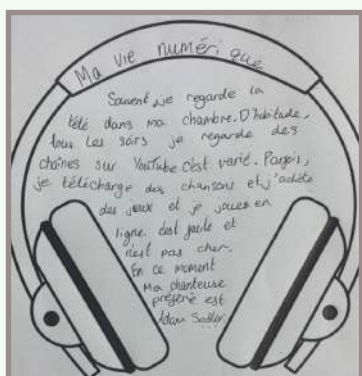 Ma vie numérique
Souvent je regarde la
télé dans ma chambre. D'habitude,
tous les soirs je regarde des
chaînes sur YouTube c'est varié. Parfois,
je télécharge des chansons et j'achète
des jeux et je joues en
ligne. c'est facile et
n'est pas cher.
En ce moment
Ma chanteuse
préféré est
Adam